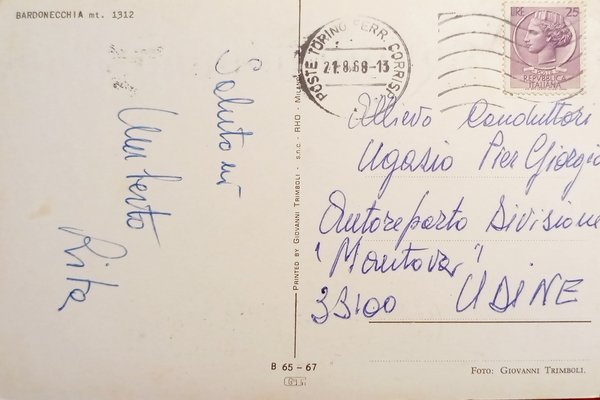 BARDONECCHIA mt. 1312
Saluto mi
Umberto
Rita
PRINTED BY GIOVANNI TRIMBOLI - s.n.c. - RHO - MILANO
POSTE TORINO FERR. CORRISP
21.8.68-13
LIRE 25
REPVBBLICA
ITALIANA
Allievo Conduttori
Ugasio Pier Giorgio
Autoreparto Divisione
"Mantova"
33100 UDINE
B 65 - 67
FOTO: GIOVANNI TRIMBOLI.